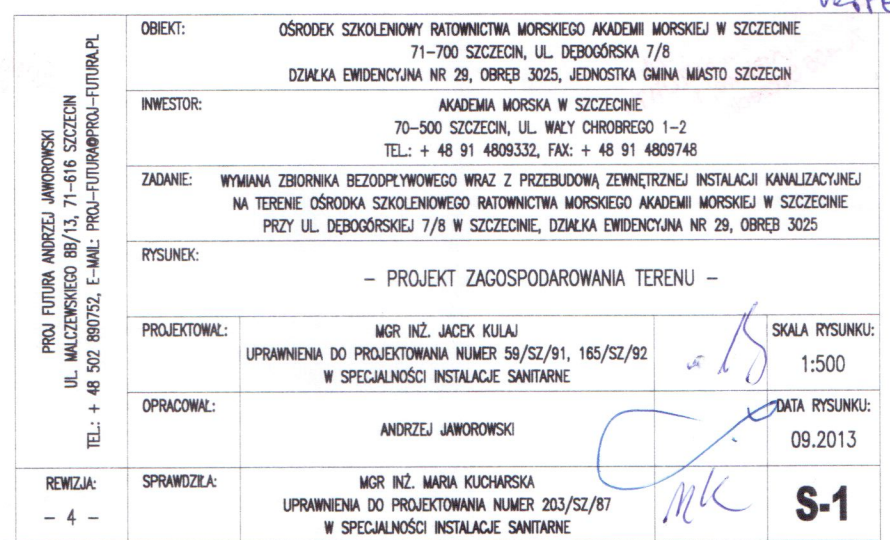 PROJ FUTURA ANDRZEJ JAWOROWSKI
UL. MALCZEWSKIEGO 8B/13, 71-616 SZCZECIN
TEL.: + 48 502 890752, E-MAIL: PROJ-FUTURA@PROJ-FUTURA.PL
OBIEKT:
OŚRODEK SZKOLENIOWY RATOWNICTWA MORSKIEGO AKADEMII MORSKIEJ W SZCZECINIE
71-700 SZCZECIN, UL. DĘBOGÓRSKA 7/8
DZIAŁKA EWIDENCYJNA NR 29, OBRĘB 3025, JEDNOSTKA GMINA MIASTO SZCZECIN
INWESTOR:
AKADEMIA MORSKA W SZCZECINIE
70-500 SZCZECIN, UL. WAŁY CHROBREGO 1-2
TEL.: + 48 91 4809332, FAX: + 48 91 4809748
ZADANIE:
WYMIANA ZBIORNIKA BEZODPŁYWOWEGO WRAZ Z PRZEBUDOWĄ ZEWNĘTRZNEJ INSTALACJI KANALIZACYJNEJ
NA TERENIE OŚRODKA SZKOLENIOWEGO RATOWNICTWA MORSKIEGO AKADEMII MORSKIEJ W SZCZECINIE
PRZY UL. DĘBOGÓRSKIEJ 7/8 W SZCZECINIE, DZIAŁKA EWIDENCYJNA NR 29, OBRĘB 3025
RYSUNEK:
- PROJEKT ZAGOSPODAROWANIA TERENU -
PROJEKTOWAŁ:
MGR INŻ. JACEK KULAJ
UPRAWNIENIA DO PROJEKTOWANIA NUMER 59/SZ/91, 165/SZ/92
W SPECJALNOŚCI INSTALACJE SANITARNE
SKALA RYSUNKU:
1:500
OPRACOWAŁ:
ANDRZEJ JAWOROWSKI
DATA RYSUNKU:
09.2013
REWIZJA:
- 4 -
SPRAWDZIŁA:
MGR INŻ. MARIA KUCHARSKA
UPRAWNIENIA DO PROJEKTOWANIA NUMER 203/SZ/87
W SPECJALNOŚCI INSTALACJE SANITARNE
MK
S-1